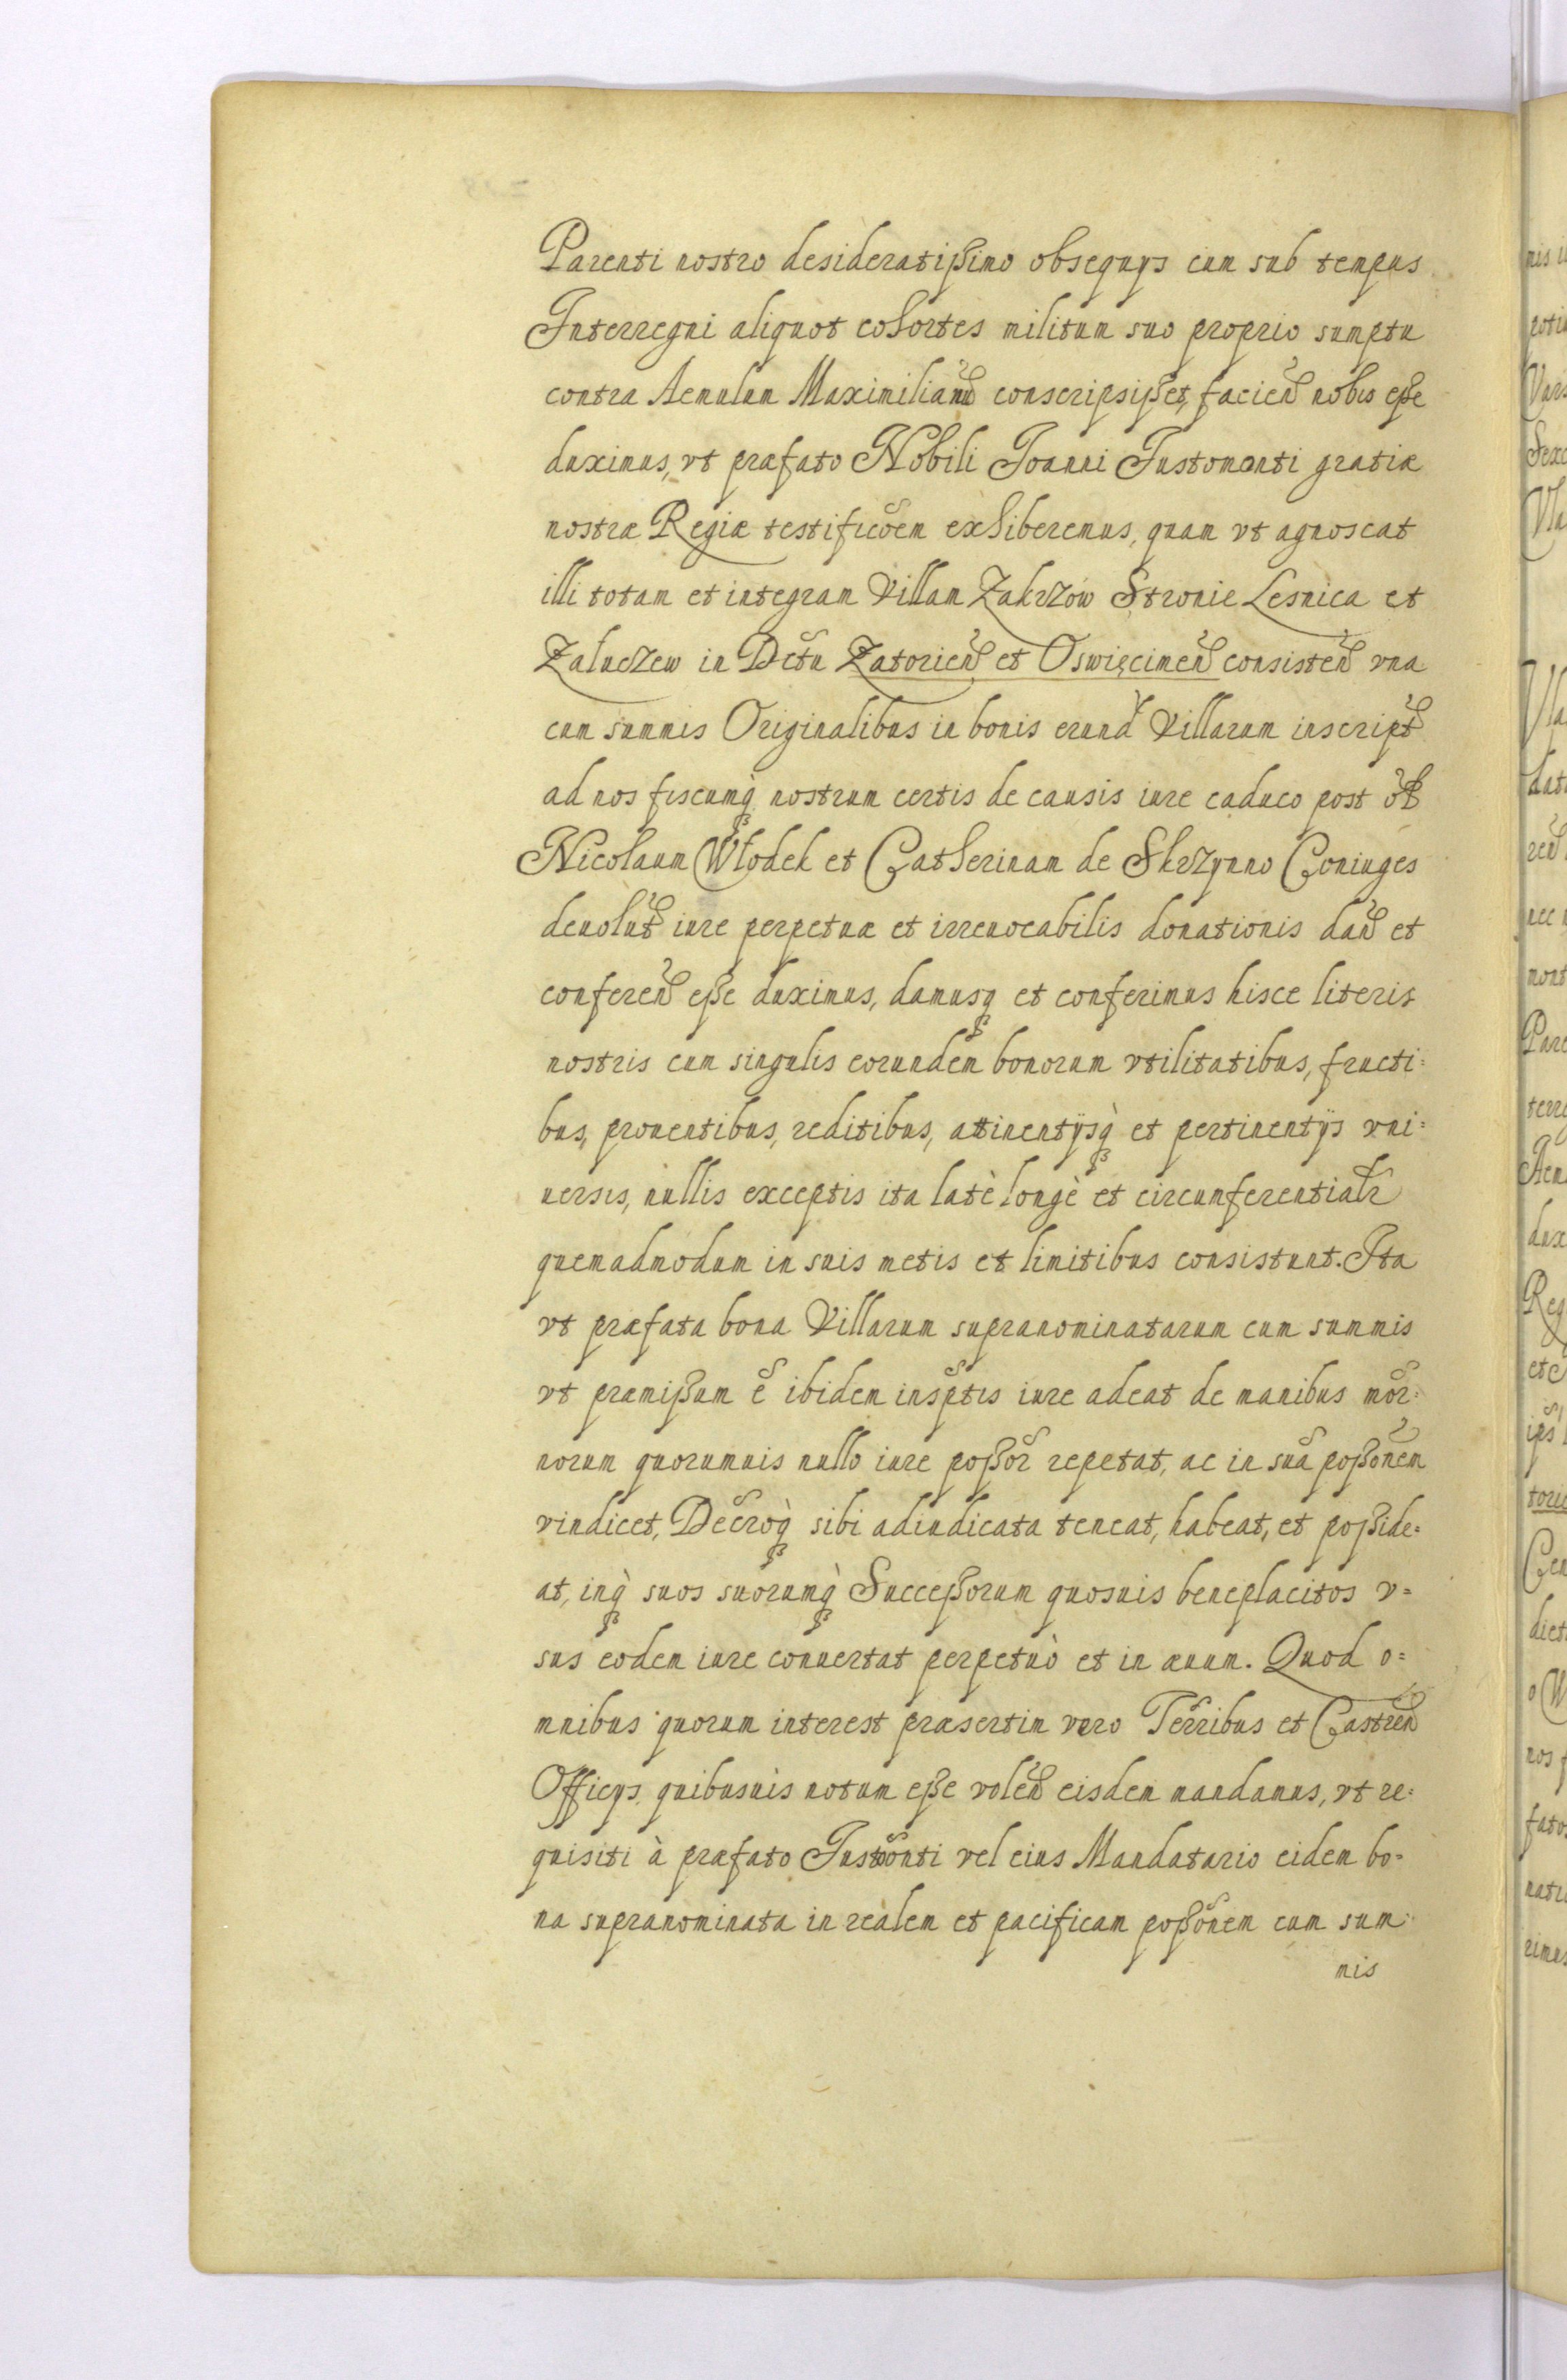 Parenti nostro desideratißimo obsequÿs cum sub tempus
Interregni aliquot cohortes militum suo proprio sumptu
contra Aemulum Maximilianũ conscripsißet, facieñ nobis eße
duximus, vt præfato Nobili Joanni Justomonti gratiæ
nostræ Regiæ testificõem exhiberemus, quam vt agnoscat
illi totam et integram Villam Zakrzow Stronie Lesnica et
Zaluczew in Dctũ Zatorieñ et Oswięcimeñ consisteñ vna
cum summis Originalibus in bonis erund̃ Villarum inscript̃
ad nos fiscumq̀ꝫ nostrum certis de causis iure caduco post ob̃
Nicolaum Włodek et Catherinam de Skrzynno Coniuges
deuolut̃ iure perpetuæ et irreuocabilis donationis dañ et
confereñ eße duximus, damusqꝫ et conferimus hisce literis
nostris cum singulis eorundem̃ bonorum vtilitatibus, fructi=
bus, prouentibus, reditibus, attinentÿsq̀ꝫ et pertinentÿs vni=
uersis, nullis exceptis ita latè longè et circumferentialr̃
quemadmodum in suis metis et limitibus consistunt. Ita
vt præfata bona Villarum supranominatarum cum summis
vt præmißum ẽ ibidem insp̃tis iure adeat de manibus mõr=
norum quorumuis nullo iure poßõr repetat, ac in suã poßõnem
vindicet, Decr̃oq̀ꝫ sibi adiudicata teneat, habeat, et poßide=
at, inq̀ꝫ suos suorumq̀ꝫ Succeßorum quosuis beneplacitos v=
sus eodem iure conuertat perpetuò et in æuum. Quod o=
mnibus quorum interest præsertim vero Ter̃ribus et Castreñ
Officÿs quibusuis notum eße voleñ eisdem mandamus, vt re=
quisiti à præfato Justõonti vel eius Mandatario eidem bo=
na supranominata in realem et pacificam poßõnem cum sum=
mis